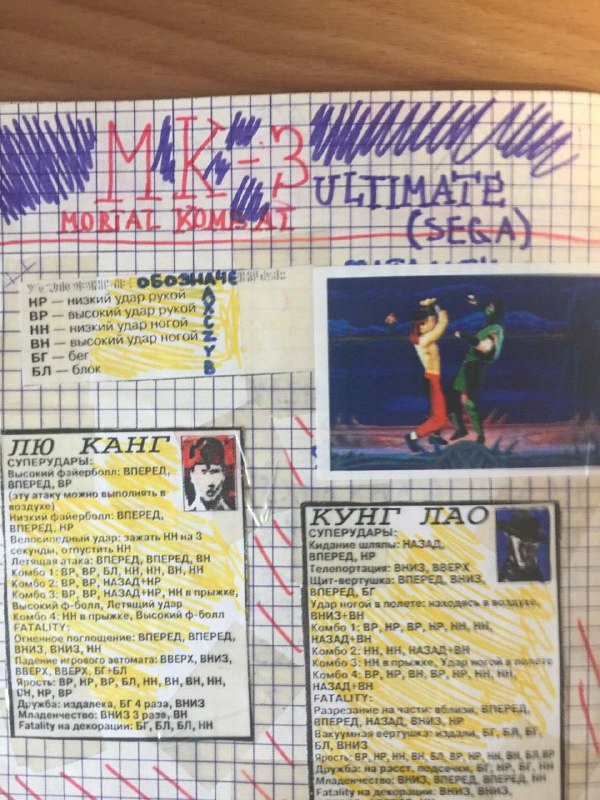 МК-3
ULTIMATE
MORTAL KOMBAT
(SEGA)
ОБОЗНАЧЕ
НР — низкий удар рукой A
ВР — высокий удар рукой X
НН — низкий удар ногой C
ВН — высокий удар ногой Z
БГ — бег Y
БЛ — блок B
ЛЮ КАНГ
СУПЕРУДАРЫ:
Высокий файерболл: ВПЕРЕД,
ВПЕРЕД, ВР
(эту атаку можно выполнять в
воздухе)
Низкий файерболл: ВПЕРЕД,
ВПЕРЕД, НР
Велосипедный удар: зажать НН на 3
секунды, отпустить НН
Летящая атака: ВПЕРЕД, ВПЕРЕД, ВН
Комбо 1: ВР, ВР, БЛ, НН, НН, ВН, НН
Комбо 2: ВР, ВР, НАЗАД+НР
Комбо 3: ВР, ВР, НАЗАД+НР, НН в прыжке,
Высокий ф-болл, Летящий удар
Комбо 4: НН в прыжке, Высокий ф-болл
FATALITY:
Огненное поглощение: ВПЕРЕД, ВПЕРЕД,
ВНИЗ, ВНИЗ, НН
Падение игрового автомата: ВВЕРХ, ВНИЗ,
ВВЕРХ, ВВЕРХ, БГ+БЛ
Ярость: ВР, НР, ВР, БЛ, НН, ВН, ВН, НН,
ВН, НР, ВР
Дружба: издалека, БГ 4 раза, ВНИЗ
Младенчество: ВНИЗ 3 раза, ВН
Fatality на декорации: БГ, БЛ, БЛ, НН
КУНГ ЛАО
СУПЕРУДАРЫ:
Кидание шляпы: НАЗАД,
ВПЕРЕД, НР
Телепортация: ВНИЗ, ВВЕРХ
Щит-вертушка: ВПЕРЕД, ВНИЗ,
ВПЕРЕД, БГ
Удар ногой в полете: находясь в воздухе,
ВНИЗ+ВН
Комбо 1: ВР, НР, ВР, НР, НН, НН,
НАЗАД+ВН
Комбо 2: НН, НН, НАЗАД+ВН
Комбо 3: НН в прыжке, Удар ногой в полете
Комбо 4: ВР, НР, ВН, ВР, НР, НН, НН,
НАЗАД+ВН
FATALITY:
Разрезание на части: вблизи, ВПЕРЕД,
ВПЕРЕД, НАЗАД, ВНИЗ, НР
Вакуумная вертушка: издали, БГ, БЛ, БГ,
БЛ, ВНИЗ
Ярость: ВР, НР, НН, ВН, БЛ, ВР, НР, НН, ВН, БЛ, ВР
Дружба: на расст. подсечки, БГ, НР, БГ, НН
Младенчество: ВНИЗ, ВПЕРЕД, ВПЕРЕД, НН
Fatality на декорации: ВНИЗ, ВНИЗ,